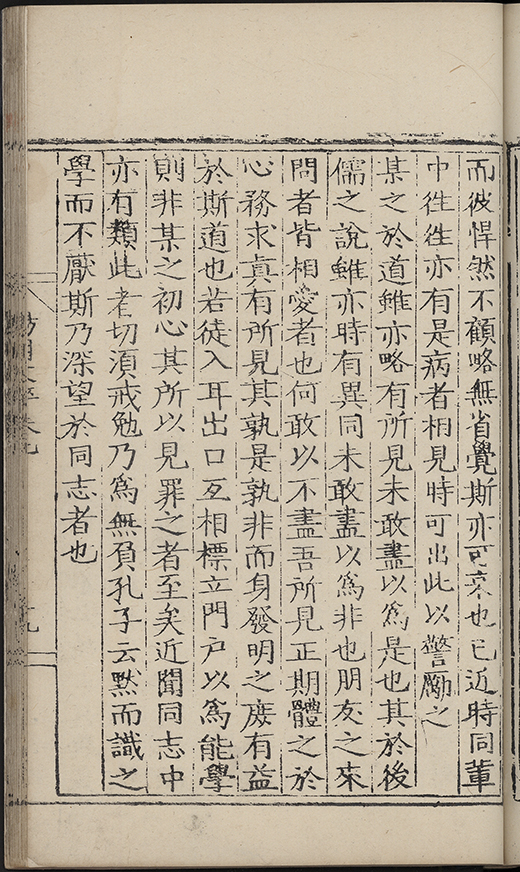 而彼悍然不顧略無省覺斯亦可哀也已近時同輩
中徃徃亦有是病者相見時可出此以警勵之
某之於道雖亦略有所見未敢盡以爲是也其於後
儒之說雖亦時有異同未敢盡以爲非也朋友之來
問者皆相愛者也何敢以不盡吾所見正期體之於
心務求眞有所見其孰是孰非而身發明之庻有益
於斯道也若徒入耳出口互相標立門户以爲能學
則非某之初心其所以見罪之者至矣近聞同志中
亦有類此者切須戒勉乃爲無負孔子云默而識之
學而不厭斯乃深望於同志者也